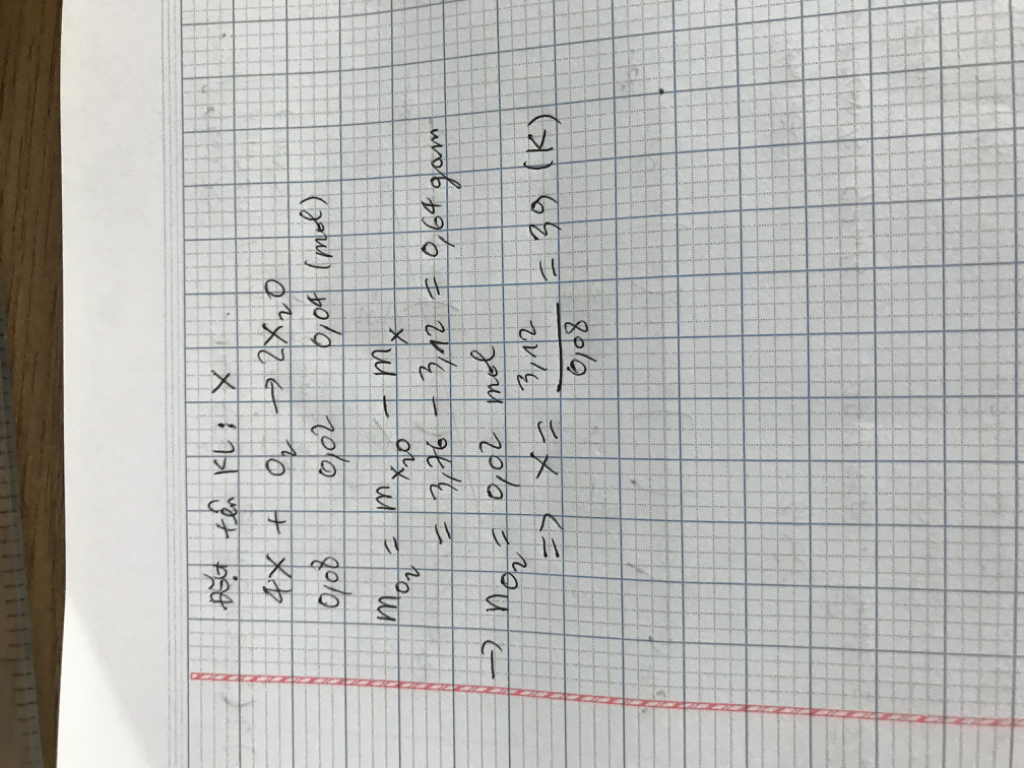 Đặt tên KL: X
4X + O₂ → 2X₂O
0,08 0,02 0,04 (mol)
mO₂ = mX₂O − mX
= 3,76 − 3,12 = 0,64 gam
→ nO₂ = 0,02 mol
=> X = 3,12/0,08 = 39 (K)